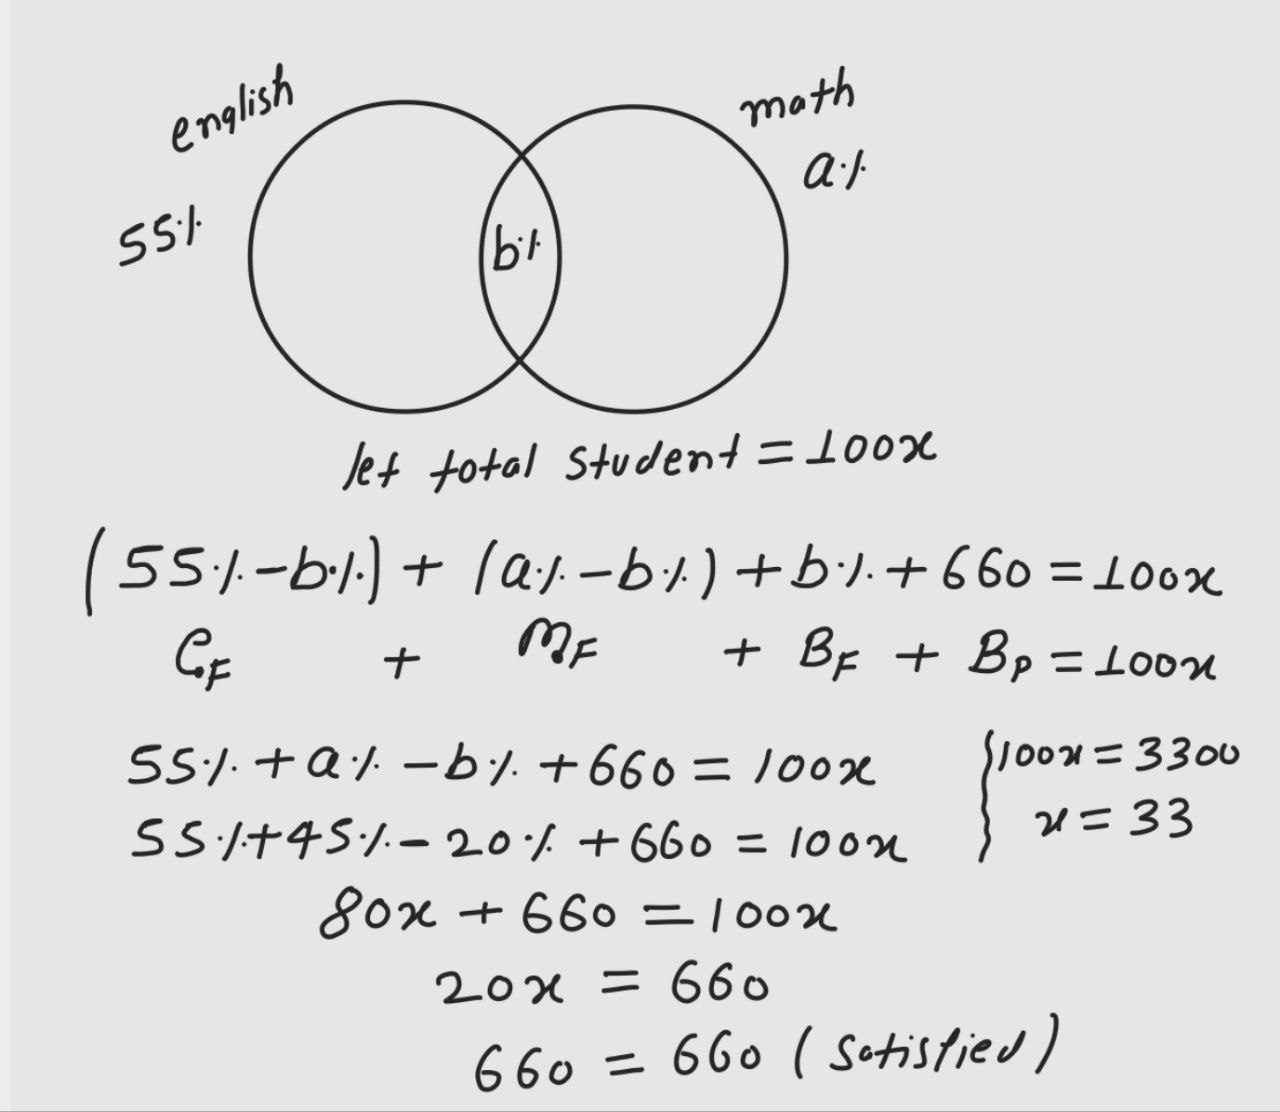 english
math
a%
55%
b%
let total student = 100x
(55% - b%) + (a% - b%) + b% + 660 = 100x
E_F + M_F + B_F + B_P = 100x
55% + a% - b% + 660 = 100x
100x = 3300
55% + 45% - 20% + 660 = 100x
x = 33
80x + 660 = 100x
20x = 660
660 = 660 (satisfied)